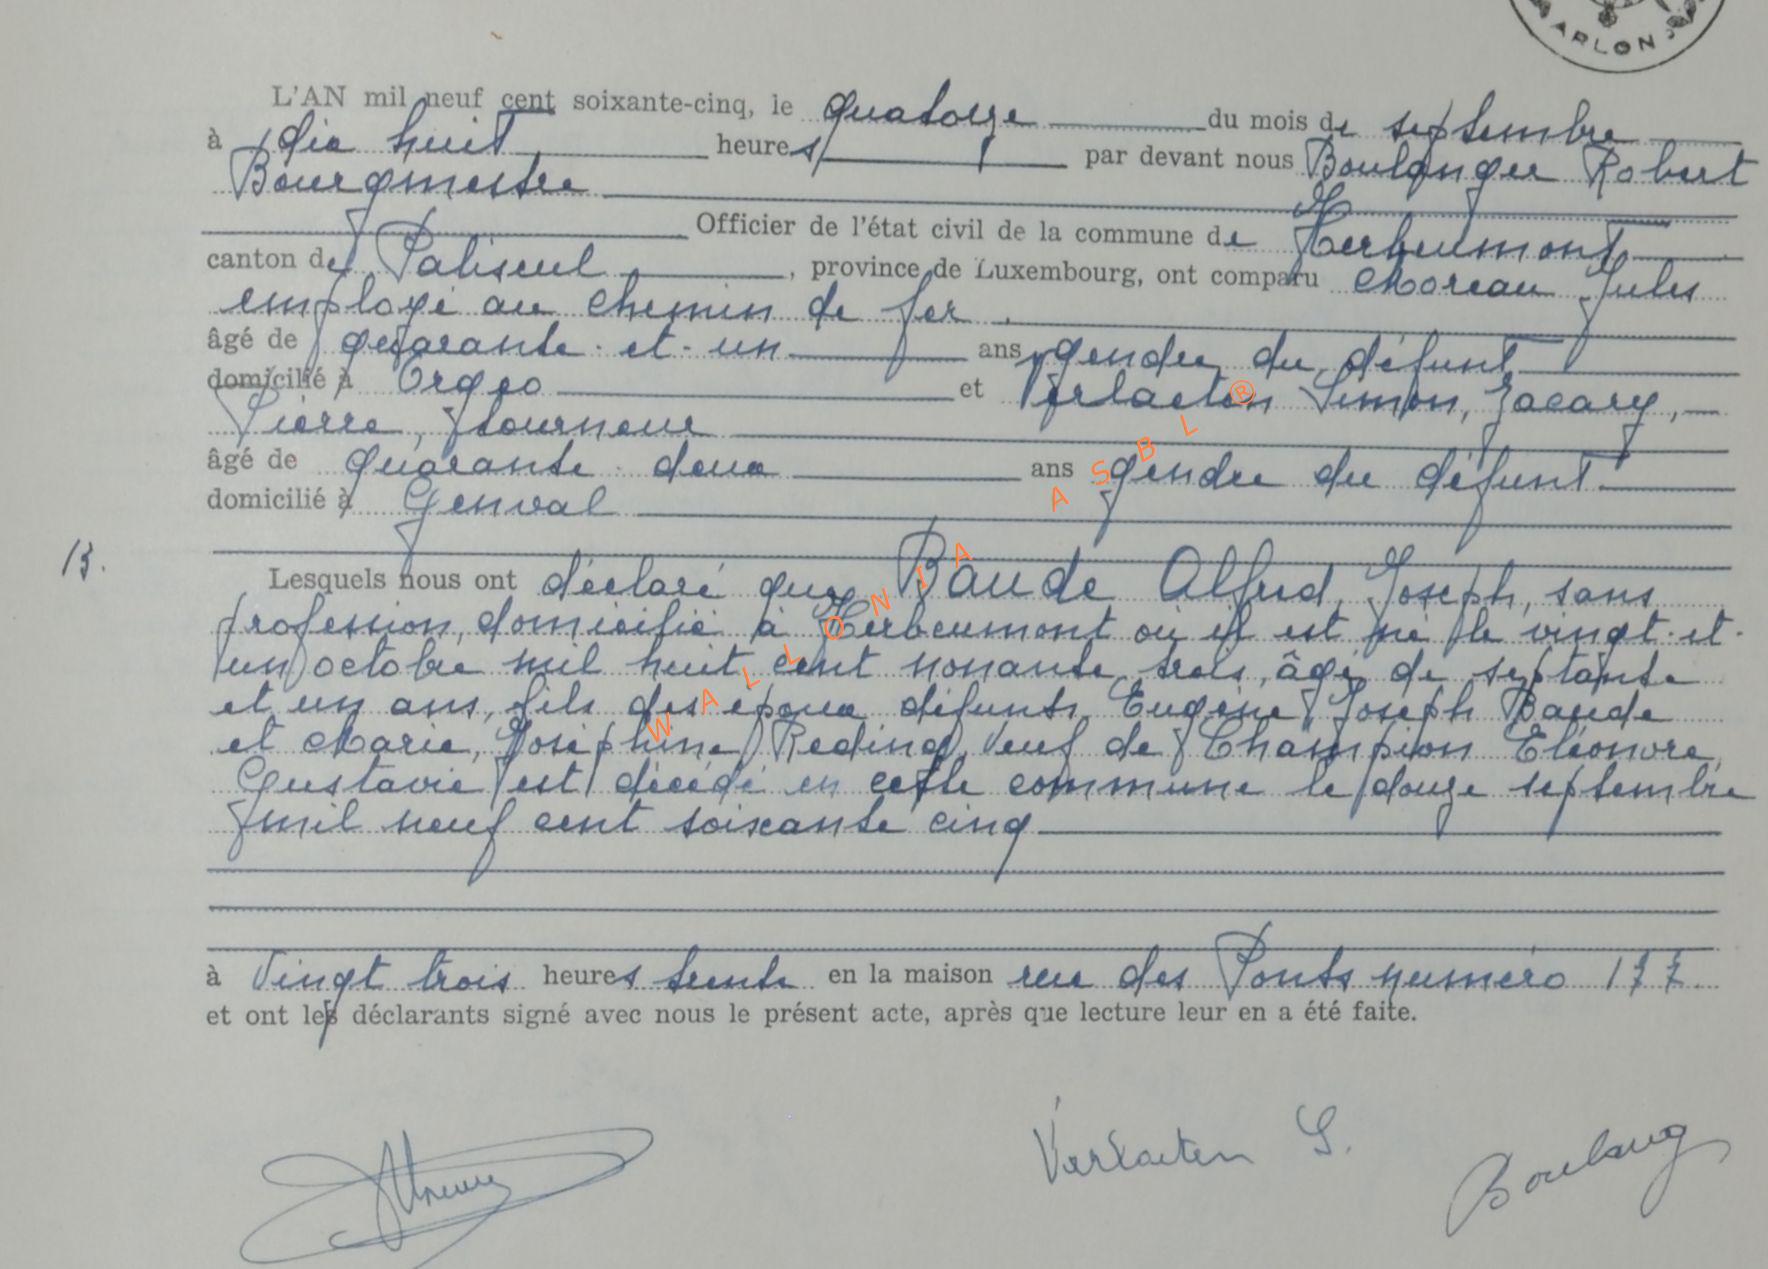 ARLON
L'AN mil neuf cent soixante-cinq, le quatorze du mois de septembre
à dix huit heures par devant nous Boulanger Robert
Bourgmestre
Officier de l'état civil de la commune de Herbeumont
canton de Paliseul, province de Luxembourg, ont comparu Moreau Jules
employé au chemin de fer.
âgé de quarante-et-un ans, gendre du défunt
domicilié à Orgeo et Verlaeten Simon, Zacary,
Pierre, tourneur
âgé de quarante deux ans gendre du défunt
domicilié à Genval
13.
Lesquels nous ont déclaré que Baude Alfred, Joseph, sans
profession, domicilié à Herbeumont où il est né le vingt-et-
un octobre mil huit cent nonante trois, âgé de septante
et un ans, fils des époux défunts Eugène, Joseph Baude
et Marie, Joséphine Reding, veuf de Champion Eléonore,
Gustavie est décédé en cette commune le douze septembre
mil neuf cent soixante cinq
à vingt trois heures trente en la maison rue des Ponts numéro 177
et ont les déclarants signé avec nous le présent acte, après que lecture leur en a été faite.
Verlaeten S.
Boulang
WALLONIA ASBL ®